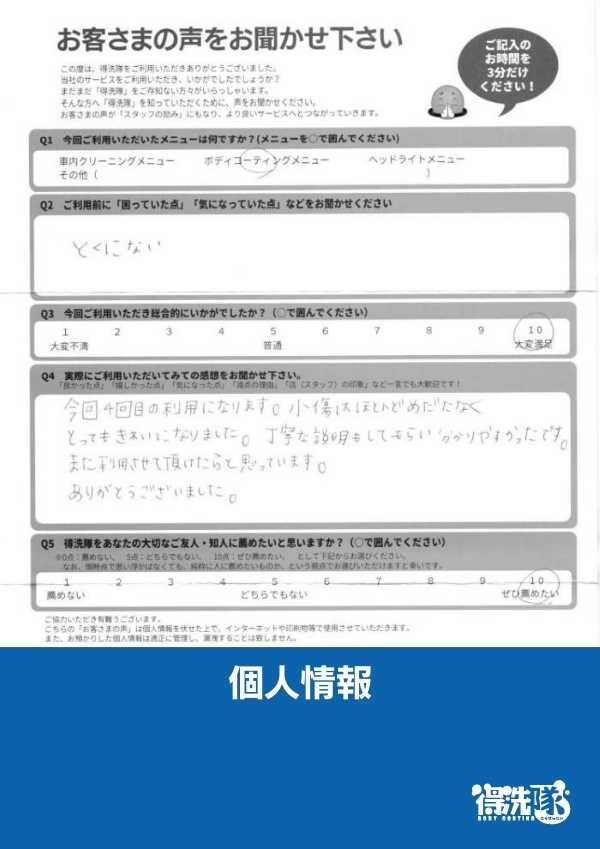 お客さまの声をお聞かせ下さい
ご記入の
お時間を
3分だけ
ください！
この度は、得洗隊をご利用いただきありがとうございました。
当社のサービスをご利用いただき、いかがでしたでしょうか？
まだまだ「得洗隊」をご存知ない方々がいらっしゃいます。
そんな方へ「得洗隊」を知っていただくために、声をお聞かせください。
お客さまの声が「スタッフの励み」にもなり、より良いサービスへとつながっていきます。
Q1 今回ご利用いただいたメニューは何ですか？(メニューを○で囲んでください)
車内クリーニングメニュー ボディコーティングメニュー ヘッドライトメニュー
その他（ ）
Q2 ご利用前に「困っていた点」「気になっていた点」などをお聞かせください
とくにない
Q3 今回ご利用いただき総合的にいかがでしたか？（○で囲んでください）
1 2 3 4 5 6 7 8 9 10
大変不満 普通 大変満足
Q4 実際にご利用いただいてみての感想をお聞かせ下さい。
「良かった点」「嬉しかった点」「気になった点」「満点の理由」「店（スタッフ）の印象」など一言でも大歓迎です！
今回4回目の利用になります。小傷はほとんどめだたなく
とってもきれいになりました。丁寧な説明もしてもらい分かりやすかったです。
また利用させて頂けたらと思っています。
ありがとうございました。
Q5 得洗隊をあなたの大切なご友人・知人に薦めたいと思いますか？（○で囲んでください）
※0点：薦めない、 5点：どちらでもない、 10点：ぜひ薦めたい、 として下記からお選びください。
なお、現時点で思い浮かばなくても、純粋に人に薦めたいものか、という視点でお選びいただけますと幸いです。
1 2 3 4 5 6 7 8 9 10
薦めない どちらでもない ぜひ薦めたい
ご協力いただき有難うございます。
こちらの「お客さまの声」は個人情報を伏せた上で、インターネットや印刷物等で使用させていただきます。
また、お預かりした個人情報は適正に管理し、漏洩することは致しません。
個人情報
得洗隊
BODY COATING